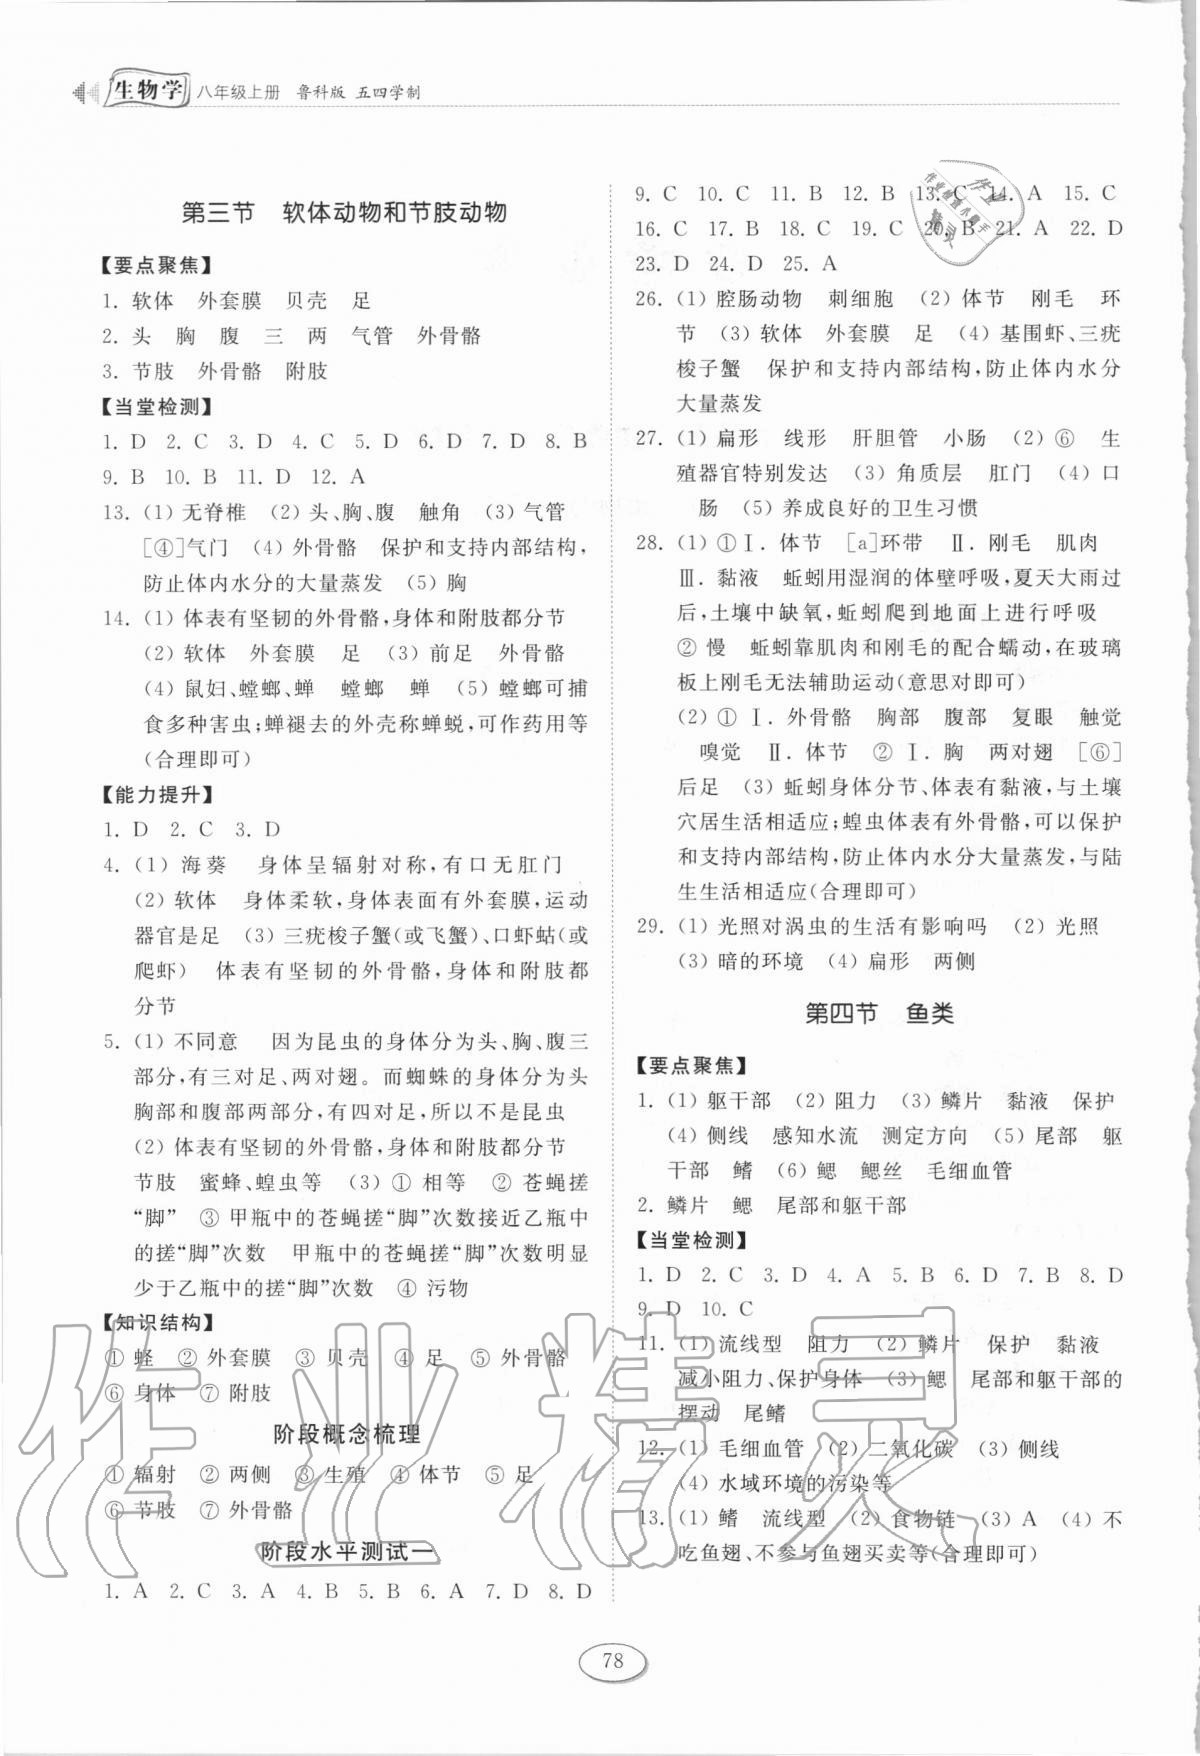 生物学 八年级上册 鲁科版 五四学制
第三节 软体动物和节肢动物
【要点聚焦】
1. 软体 外套膜 贝壳 足
2. 头 胸 腹 三 两 气管 外骨骼
3. 节肢 外骨骼 附肢
【当堂检测】
1. D 2. C 3. D 4. C 5. D 6. D 7. D 8. B
9. B 10. B 11. D 12. A
13. (1) 无脊椎 (2) 头、胸、腹 触角 (3) 气管
[④]气门 (4) 外骨骼 保护和支持内部结构,
防止体内水分的大量蒸发 (5) 胸
14. (1) 体表有坚韧的外骨骼,身体和附肢都分节
(2) 软体 外套膜 足 (3) 前足 外骨骼
(4) 鼠妇、螳螂、蝉 螳螂 蝉 (5) 螳螂可捕
食多种害虫;蝉褪去的外壳称蝉蜕,可作药用等
(合理即可)
【能力提升】
1. D 2. C 3. D
4. (1) 海葵 身体呈辐射对称,有口无肛门
(2) 软体 身体柔软,身体表面有外套膜,运动
器官是足 (3) 三疣梭子蟹(或飞蟹)、口虾蛄(或
爬虾) 体表有坚韧的外骨骼,身体和附肢都
分节
5. (1) 不同意 因为昆虫的身体分为头、胸、腹三
部分,有三对足、两对翅。而蜘蛛的身体分为头
胸部和腹部两部分,有四对足,所以不是昆虫
(2) 体表有坚韧的外骨骼、身体和附肢都分节
节肢 蜜蜂、蝗虫等 (3) ① 相等 ② 苍蝇搓
“脚” ③ 甲瓶中的苍蝇搓“脚”次数接近乙瓶中
的搓“脚”次数 甲瓶中的苍蝇搓“脚”次数明显
少于乙瓶中的搓“脚”次数 ④ 污物
【知识结构】
① 蛏 ② 外套膜 ③ 贝壳 ④ 足 ⑤ 外骨骼
⑥ 身体 ⑦ 附肢
阶段概念梳理
① 辐射 ② 两侧 ③ 生殖 ④ 体节 ⑤ 足
⑥ 节肢 ⑦ 外骨骼
阶段水平测试一
1. A 2. C 3. A 4. B 5. B 6. A 7. D 8. D
9. C 10. C 11. B 12. B 13. C 14. A 15. C
16. C 17. B 18. C 19. C 20. B 21. A 22. D
23. D 24. D 25. A
26. (1) 腔肠动物 刺细胞 (2) 体节 刚毛 环
节 (3) 软体 外套膜 足 (4) 基围虾、三疣
梭子蟹 保护和支持内部结构,防止体内水分
大量蒸发
27. (1) 扁形 线形 肝胆管 小肠 (2) ⑥ 生
殖器官特别发达 (3) 角质层 肛门 (4) 口
肠 (5) 养成良好的卫生习惯
28. (1) ①Ⅰ. 体节 [a]环带 Ⅱ. 刚毛 肌肉
Ⅲ. 黏液 蚯蚓用湿润的体壁呼吸,夏天大雨过
后,土壤中缺氧,蚯蚓爬到地面上进行呼吸
② 慢 蚯蚓靠肌肉和刚毛的配合蠕动,在玻璃
板上刚毛无法辅助运动(意思对即可)
(2) ① Ⅰ. 外骨骼 胸部 腹部 复眼 触觉
嗅觉 Ⅱ. 体节 ② Ⅰ. 胸 两对翅 [⑥]
后足 (3) 蚯蚓身体分节、体表有黏液,与土壤
穴居生活相适应;蝗虫体表有外骨骼,可以保护
和支持内部结构,防止体内水分大量蒸发,与陆
生生活相适应(合理即可)
29. (1) 光照对涡虫的生活有影响吗 (2) 光照
(3) 暗的环境 (4) 扁形 两侧
第四节 鱼类
【要点聚焦】
1. (1) 躯干部 (2) 阻力 (3) 鳞片 黏液 保护
(4) 侧线 感知水流 测定方向 (5) 尾部 躯
干部 鳍 (6) 鳃 鳃丝 毛细血管
2. 鳞片 鳃 尾部和躯干部
【当堂检测】
1. D 2. C 3. D 4. A 5. B 6. D 7. B 8. D
9. D 10. C
11. (1) 流线型 阻力 (2) 鳞片 保护 黏液
减小阻力、保护身体 (3) 鳃 尾部和躯干部的
摆动 尾鳍
12. (1) 毛细血管 (2) 二氧化碳 (3) 侧线
(4) 水域环境的污染等
13. (1) 鳍 流线型 (2) 食物链 (3) A (4) 不
吃鱼翅、不参与鱼翅买卖等(合理即可)
作业精灵
78